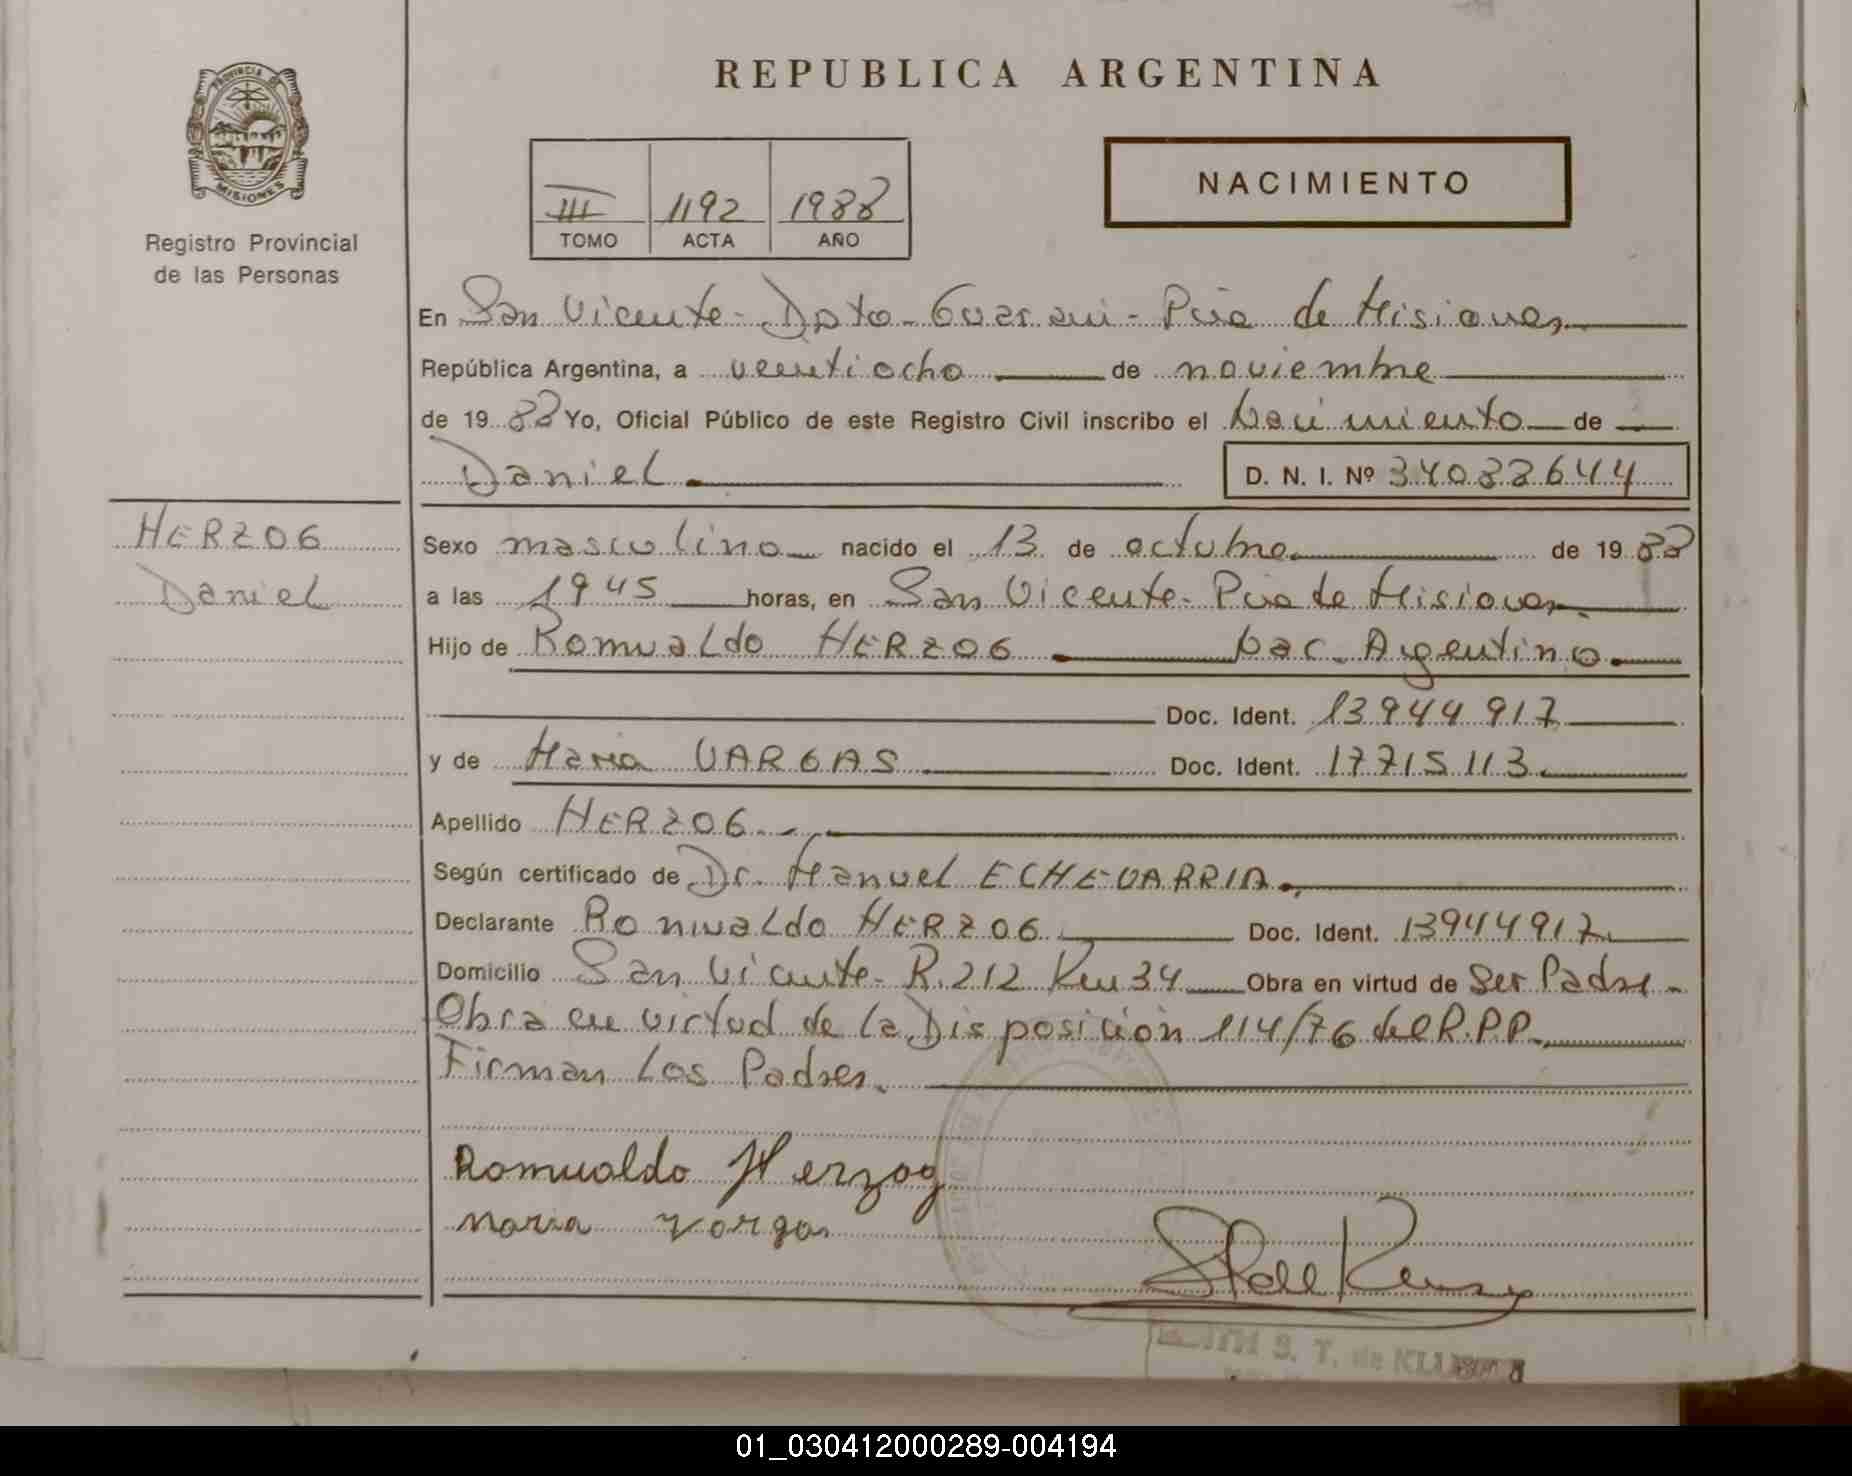 REPUBLICA ARGENTINA
PROVINCIA DE
MISIONES
Registro Provincial
de las Personas
III 1192 1988
TOMO ACTA AÑO
NACIMIENTO
En San Vicente - Dpto - Guarani - Pcia de Misiones
República Argentina, a veintiocho de noviembre
de 19 88 Yo, Oficial Público de este Registro Civil inscribo el Nacimiento de
Daniel D. N. I. Nº 34088644
HERZOG
Daniel
Sexo masculino nacido el 13 de octubre de 19 88
a las 1945 horas, en San Vicente - Pcia de Misiones
Hijo de Romualdo HERZOG Nac. Argentino
Doc. Ident. 13944917
y de Maria VARGAS Doc. Ident. 17715113
Apellido HERZOG
Según certificado de Dr. Manuel ECHEVARRIA
Declarante Romualdo HERZOG Doc. Ident. 13944917
Domicilio San Vicente - R. 212 Km 34 Obra en virtud de Ser Padre -
Obra en virtud de la Disposición 114/76 del R.P.P.
Firman Los Padres.
Romualdo Herzog
Maria Vargas
S. T. de
01_030412000289-004194